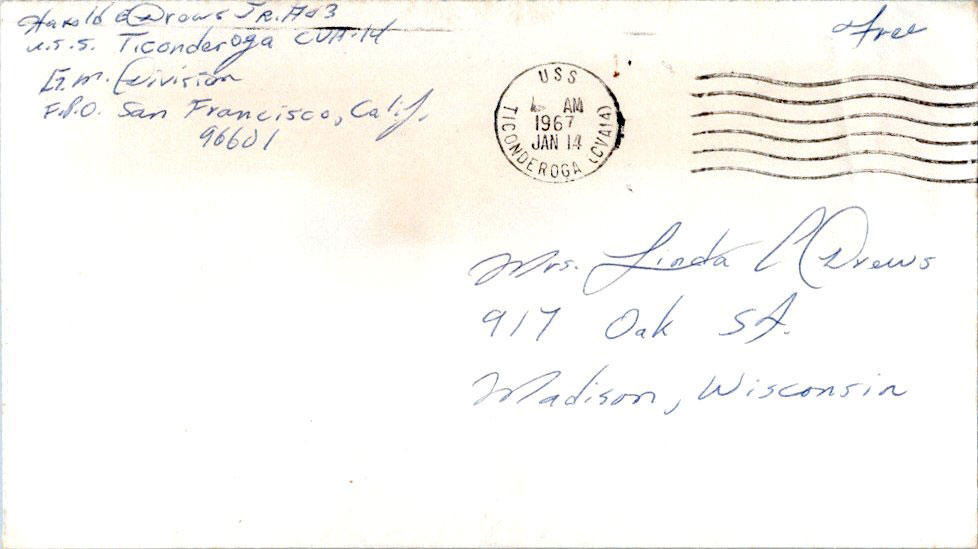 Harold C Drews Jr. AO3
U.S.S. Ticonderoga CVA-14
G.M. Division
F.P.O. San Francisco, Calif.
96601
Free
USS
AM
1967
JAN 14
TICONDEROGA (CVA14)
Mrs. Linda C Drews
917 Oak St.
Madison, Wisconsin